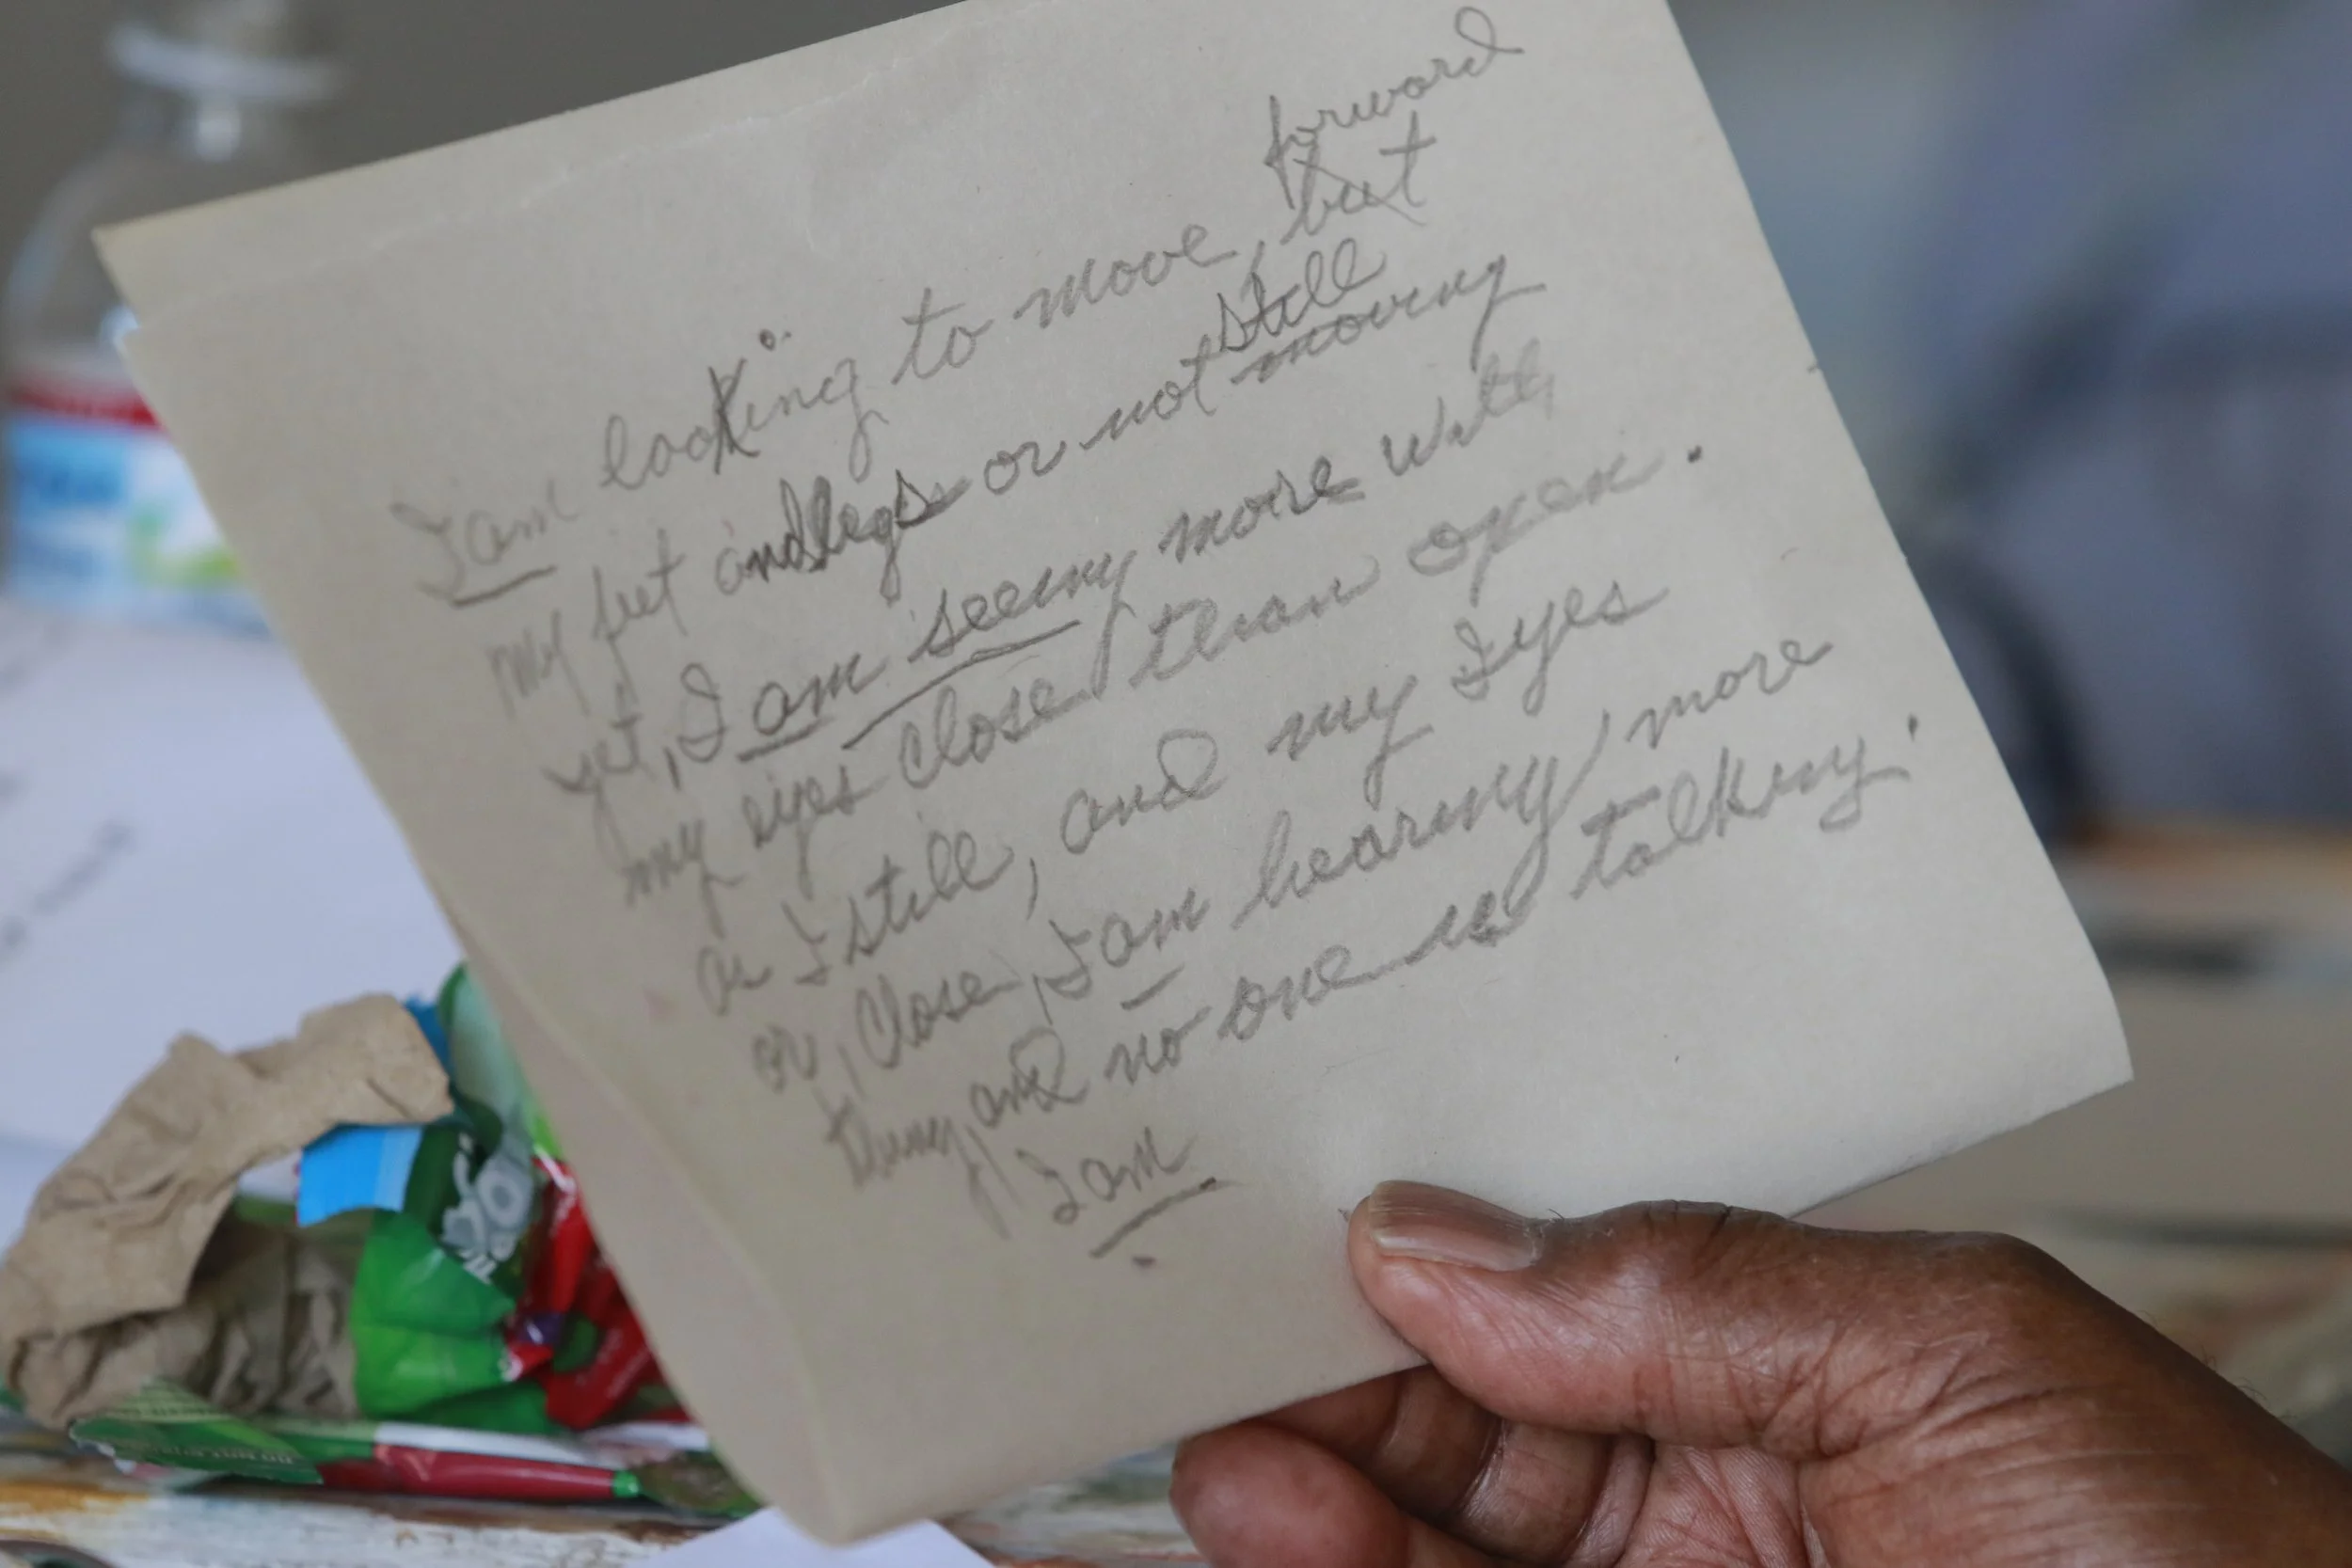 forward
I am looking to move, but
still
my feet and legs or not moving
yet, I am seeing more with
my eyes close than open.
as I still, and my Iyes
or, close, I am hearing more
thing, and no one is talking.
I am